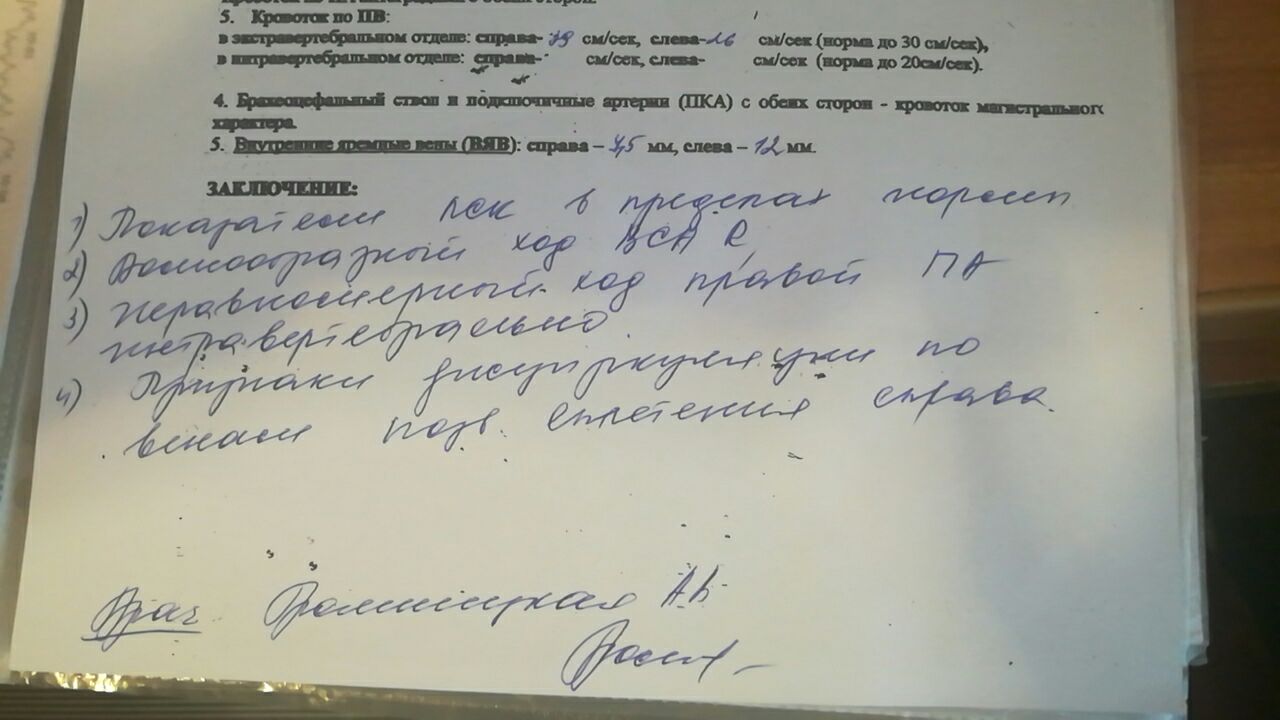 5. Кровоток по ПВ:
в экстравертебральном отделе: справа- 19 см/сек, слева- 26 см/сек (норма до 30 см/сек),
в интравертебральном отделе: справа- см/сек, слева- см/сек (норма до 20см/сек).
4. Брахеоцефальный ствол и подключичные артерии (ПКА) с обеих сторон - кровоток магистрального
характера
5. Внутренние яремные вены (ВЯВ): справа – 7,5 мм, слева – 12 мм.
ЗАКЛЮЧЕНИЕ:
1) Показатели ЛСК в пределах нормы
2) Волнообразный ход ВСА R
3) Неравномерный ход правой ПА
интравертебрально.
4) Признаки дисциркуляции по
венам позв. сплетения справа.
Врач А.В